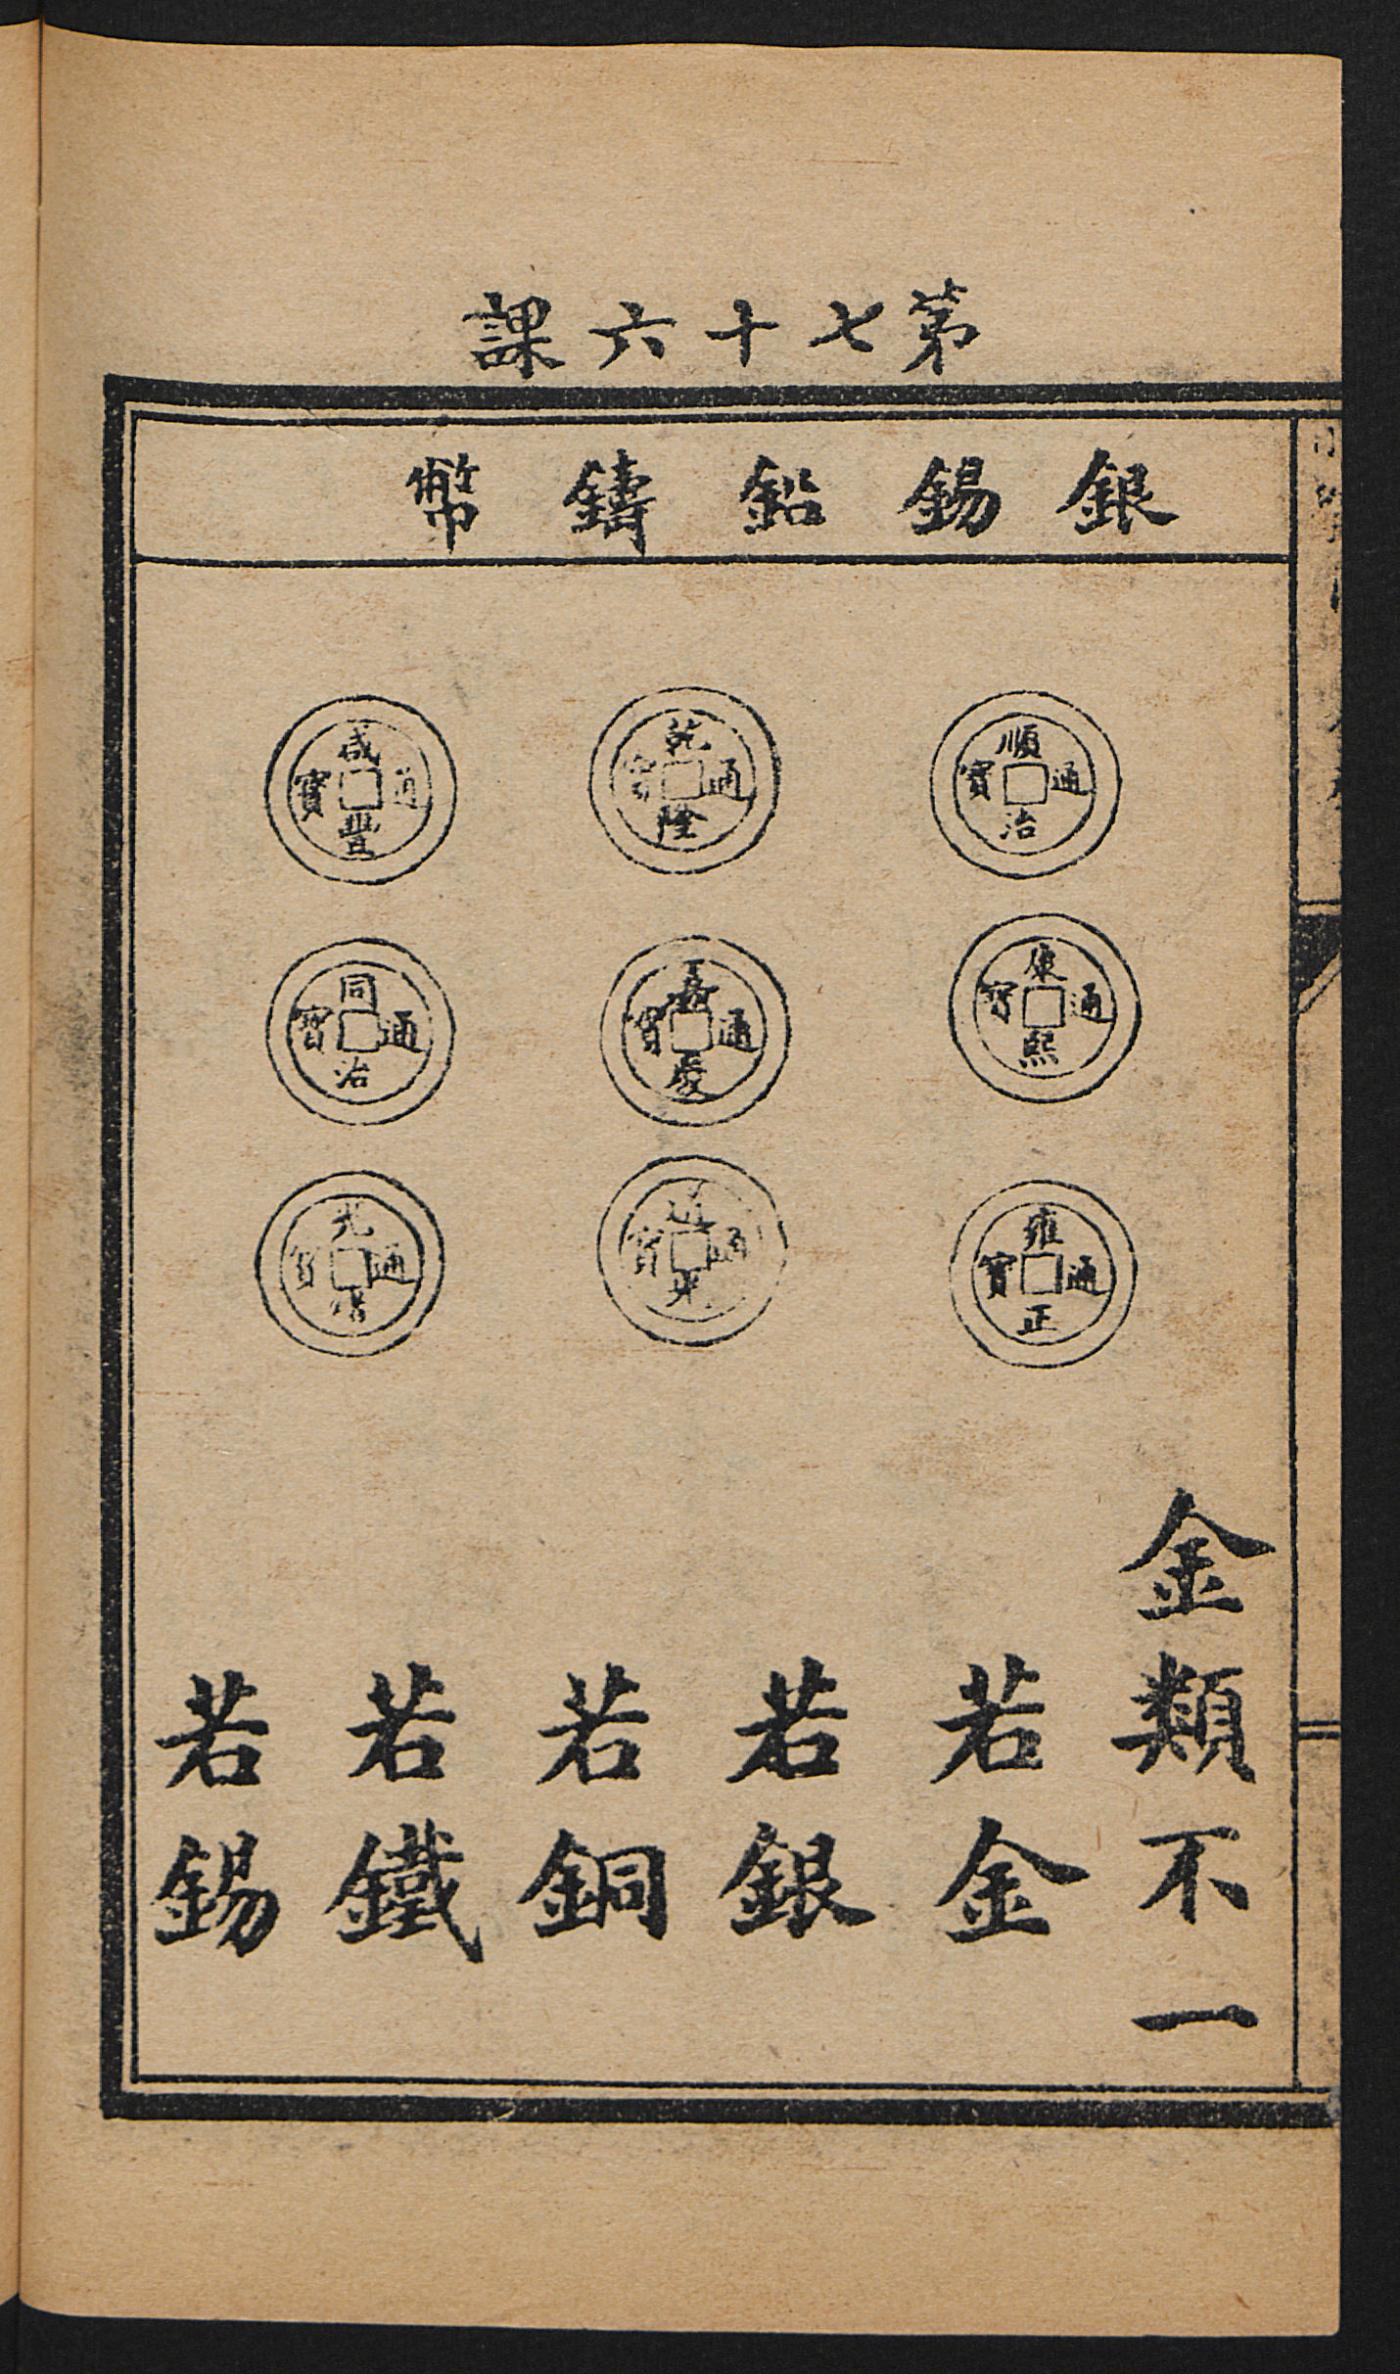 第七十六課
銀錫鉛鑄幣
順治通寶
康熙通寶
雍正通寶
乾隆通寶
嘉慶通寶
道光通寶
咸豐通寶
同治通寶
光緒通寶
金類不一
若金
若銀
若銅
若鐵
若錫